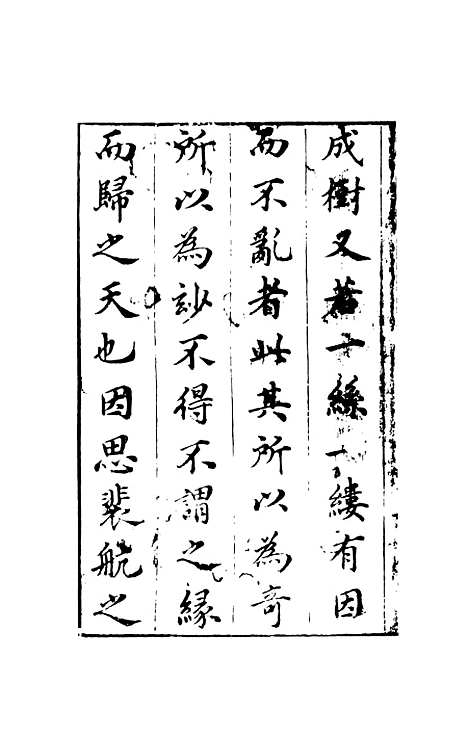 成樹又若一絲一縷有因
而不亂者此其所以為奇
所以為玅不得不謂之緣
而歸之天也因思裴航之